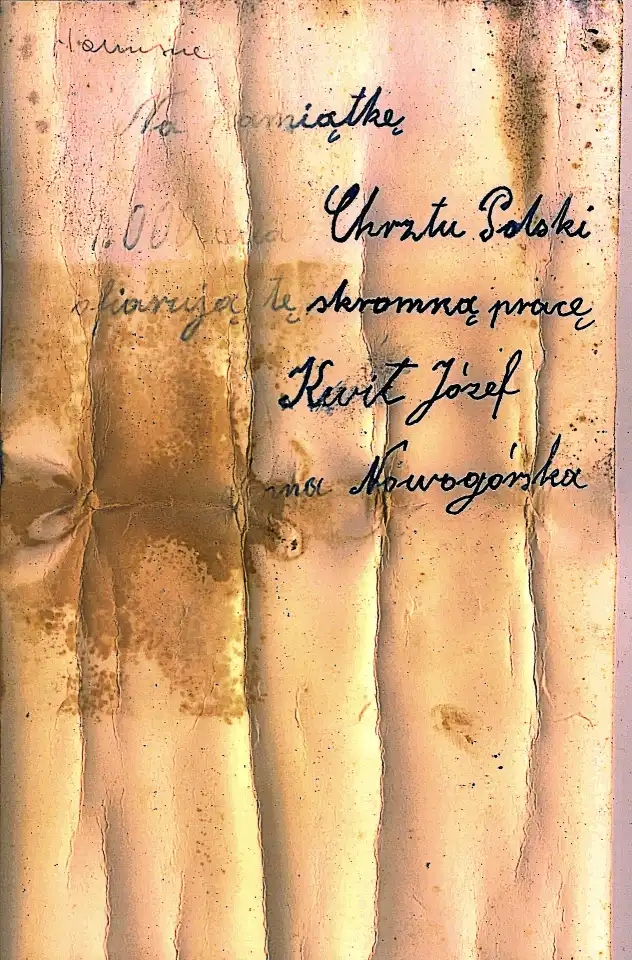 Na pamiątkę
Chrztu Polski
ofiarują tę skromną pracę
Kwit Józef
Nowogórska